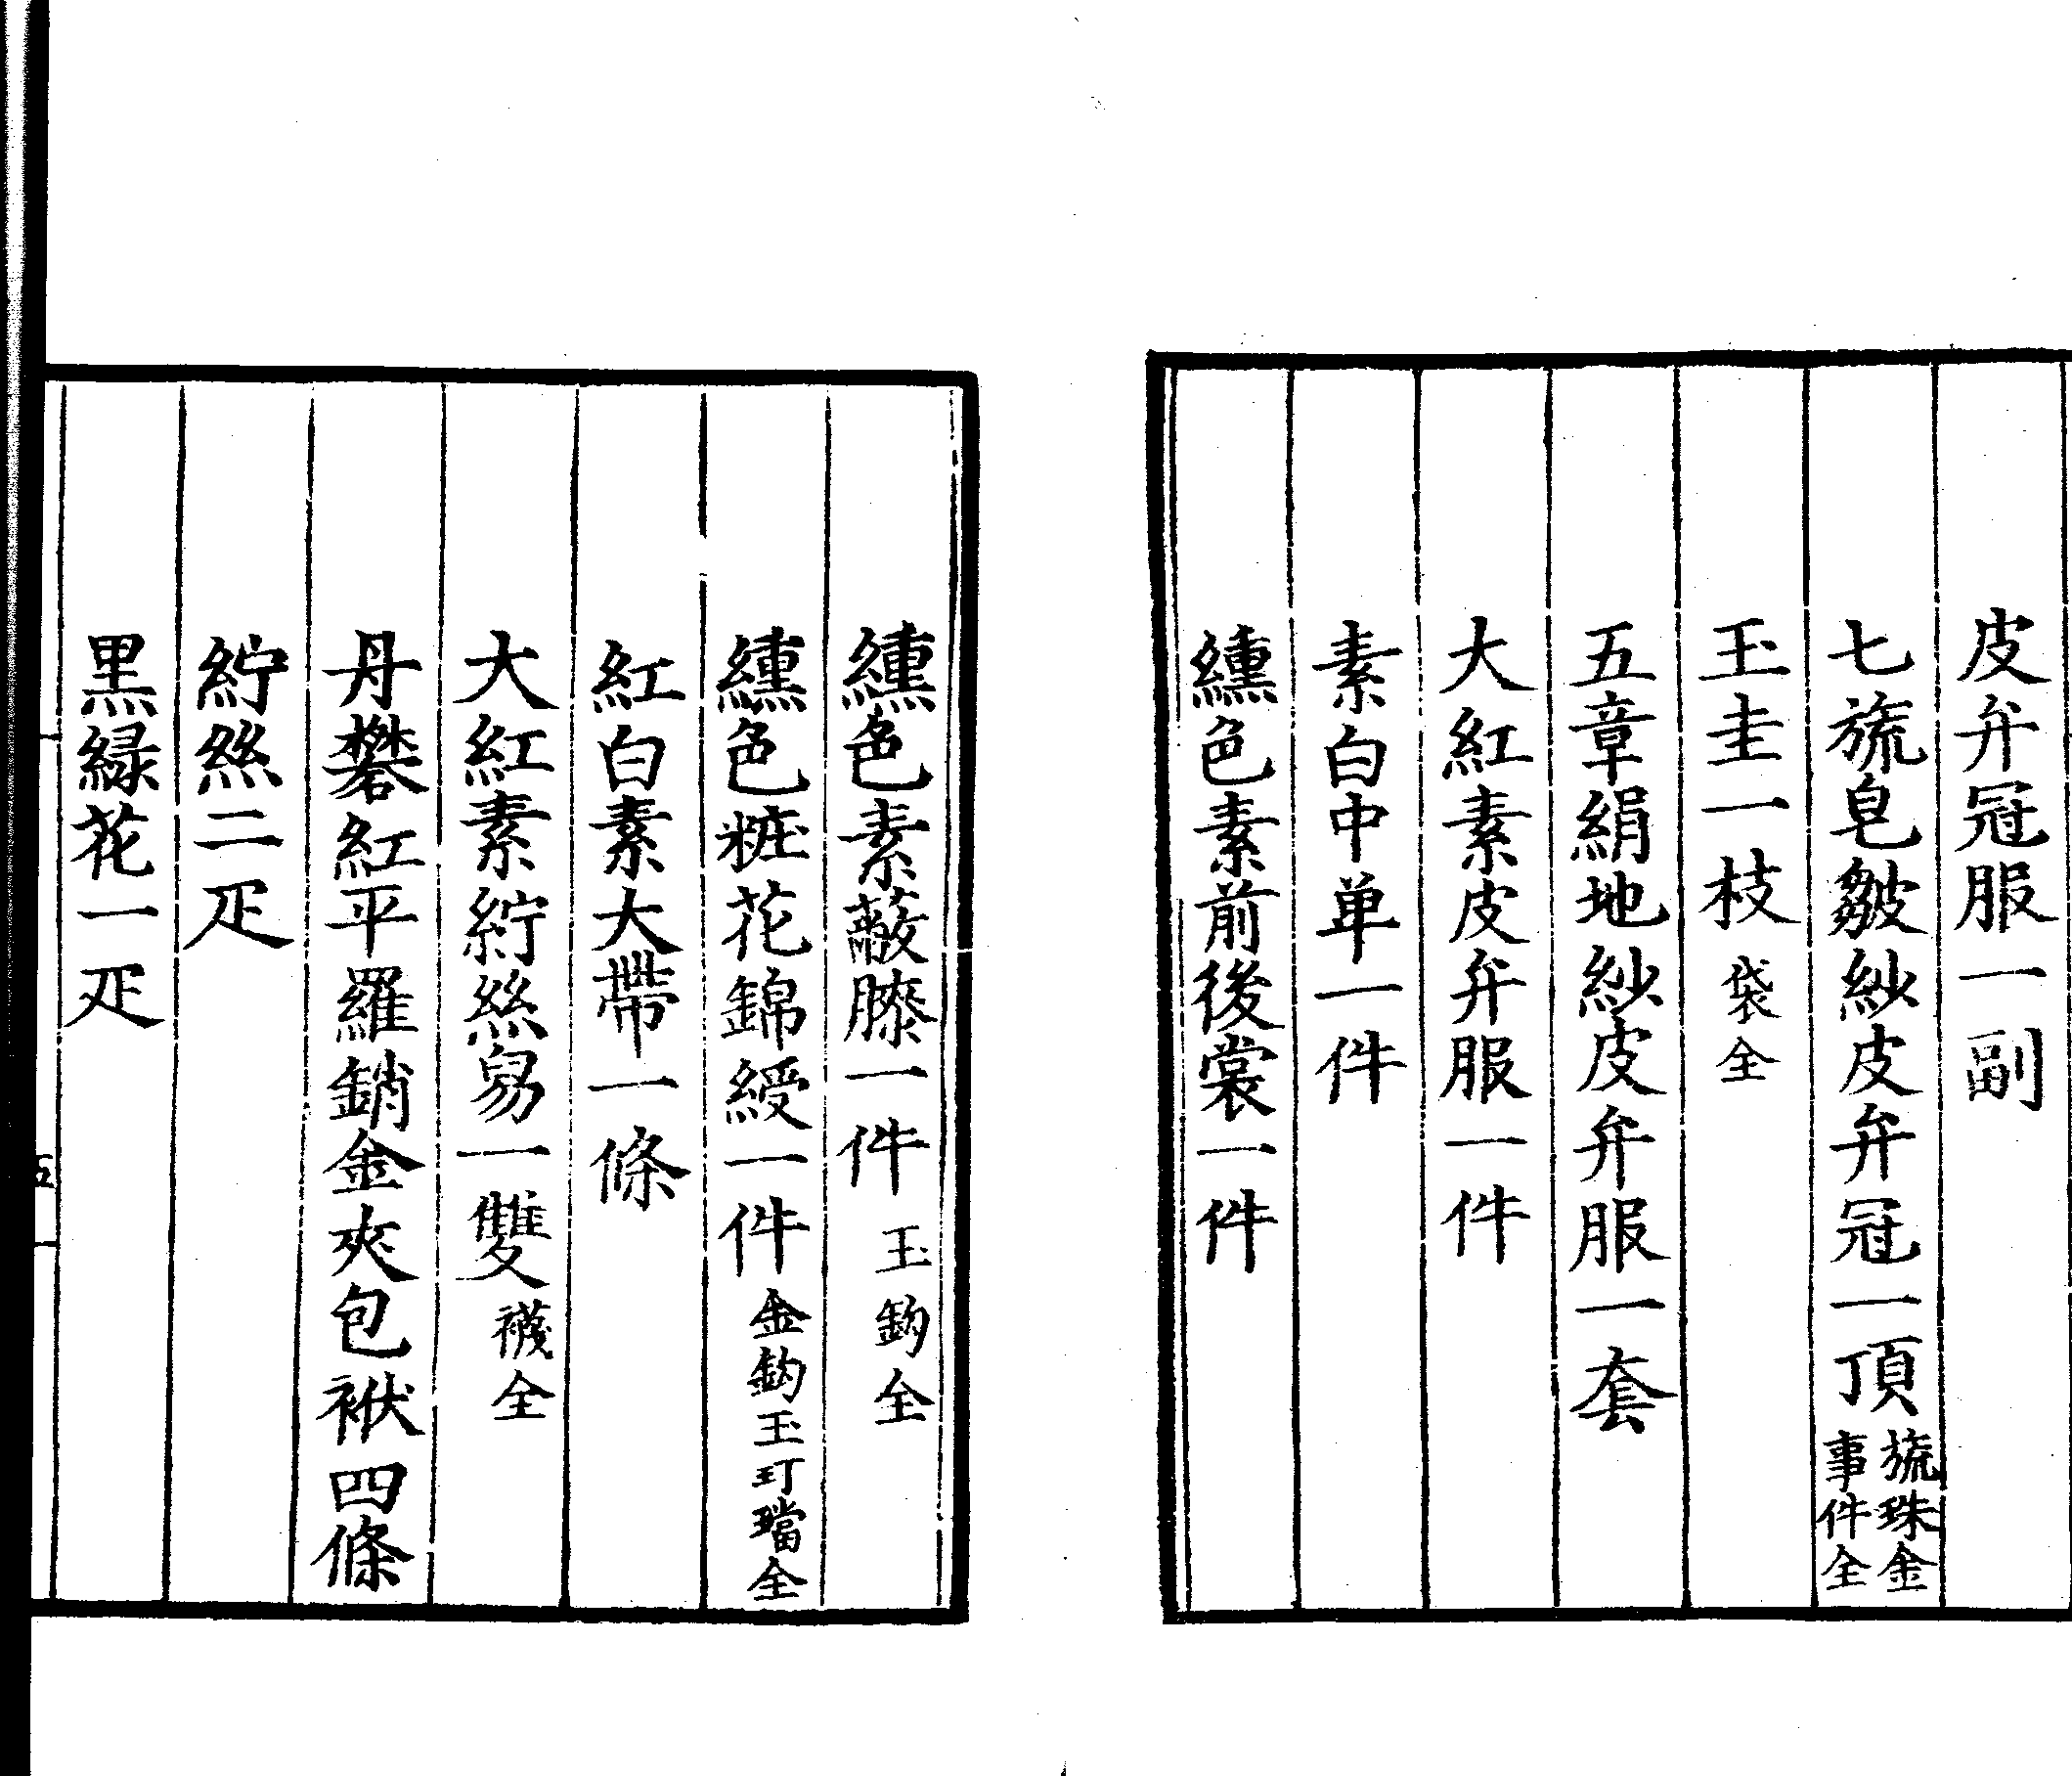 皮弁冠服一副
七旒皂皺紗皮弁冠一頂旒珠金事件全
玉圭一枝袋全
五章絹地紗皮弁服一套
大紅素皮弁服一件
素白中单一件
纁色素前後裳一件
纁色素蔽膝一件玉鈎全
纁色粧花錦綬一件金鈎玉玎璫全
紅白素大帶一條
大紅素紵絲舄一雙襪全
丹礬紅平羅銷金夾包袱四條
紵絲二疋
黒緑花一疋
五